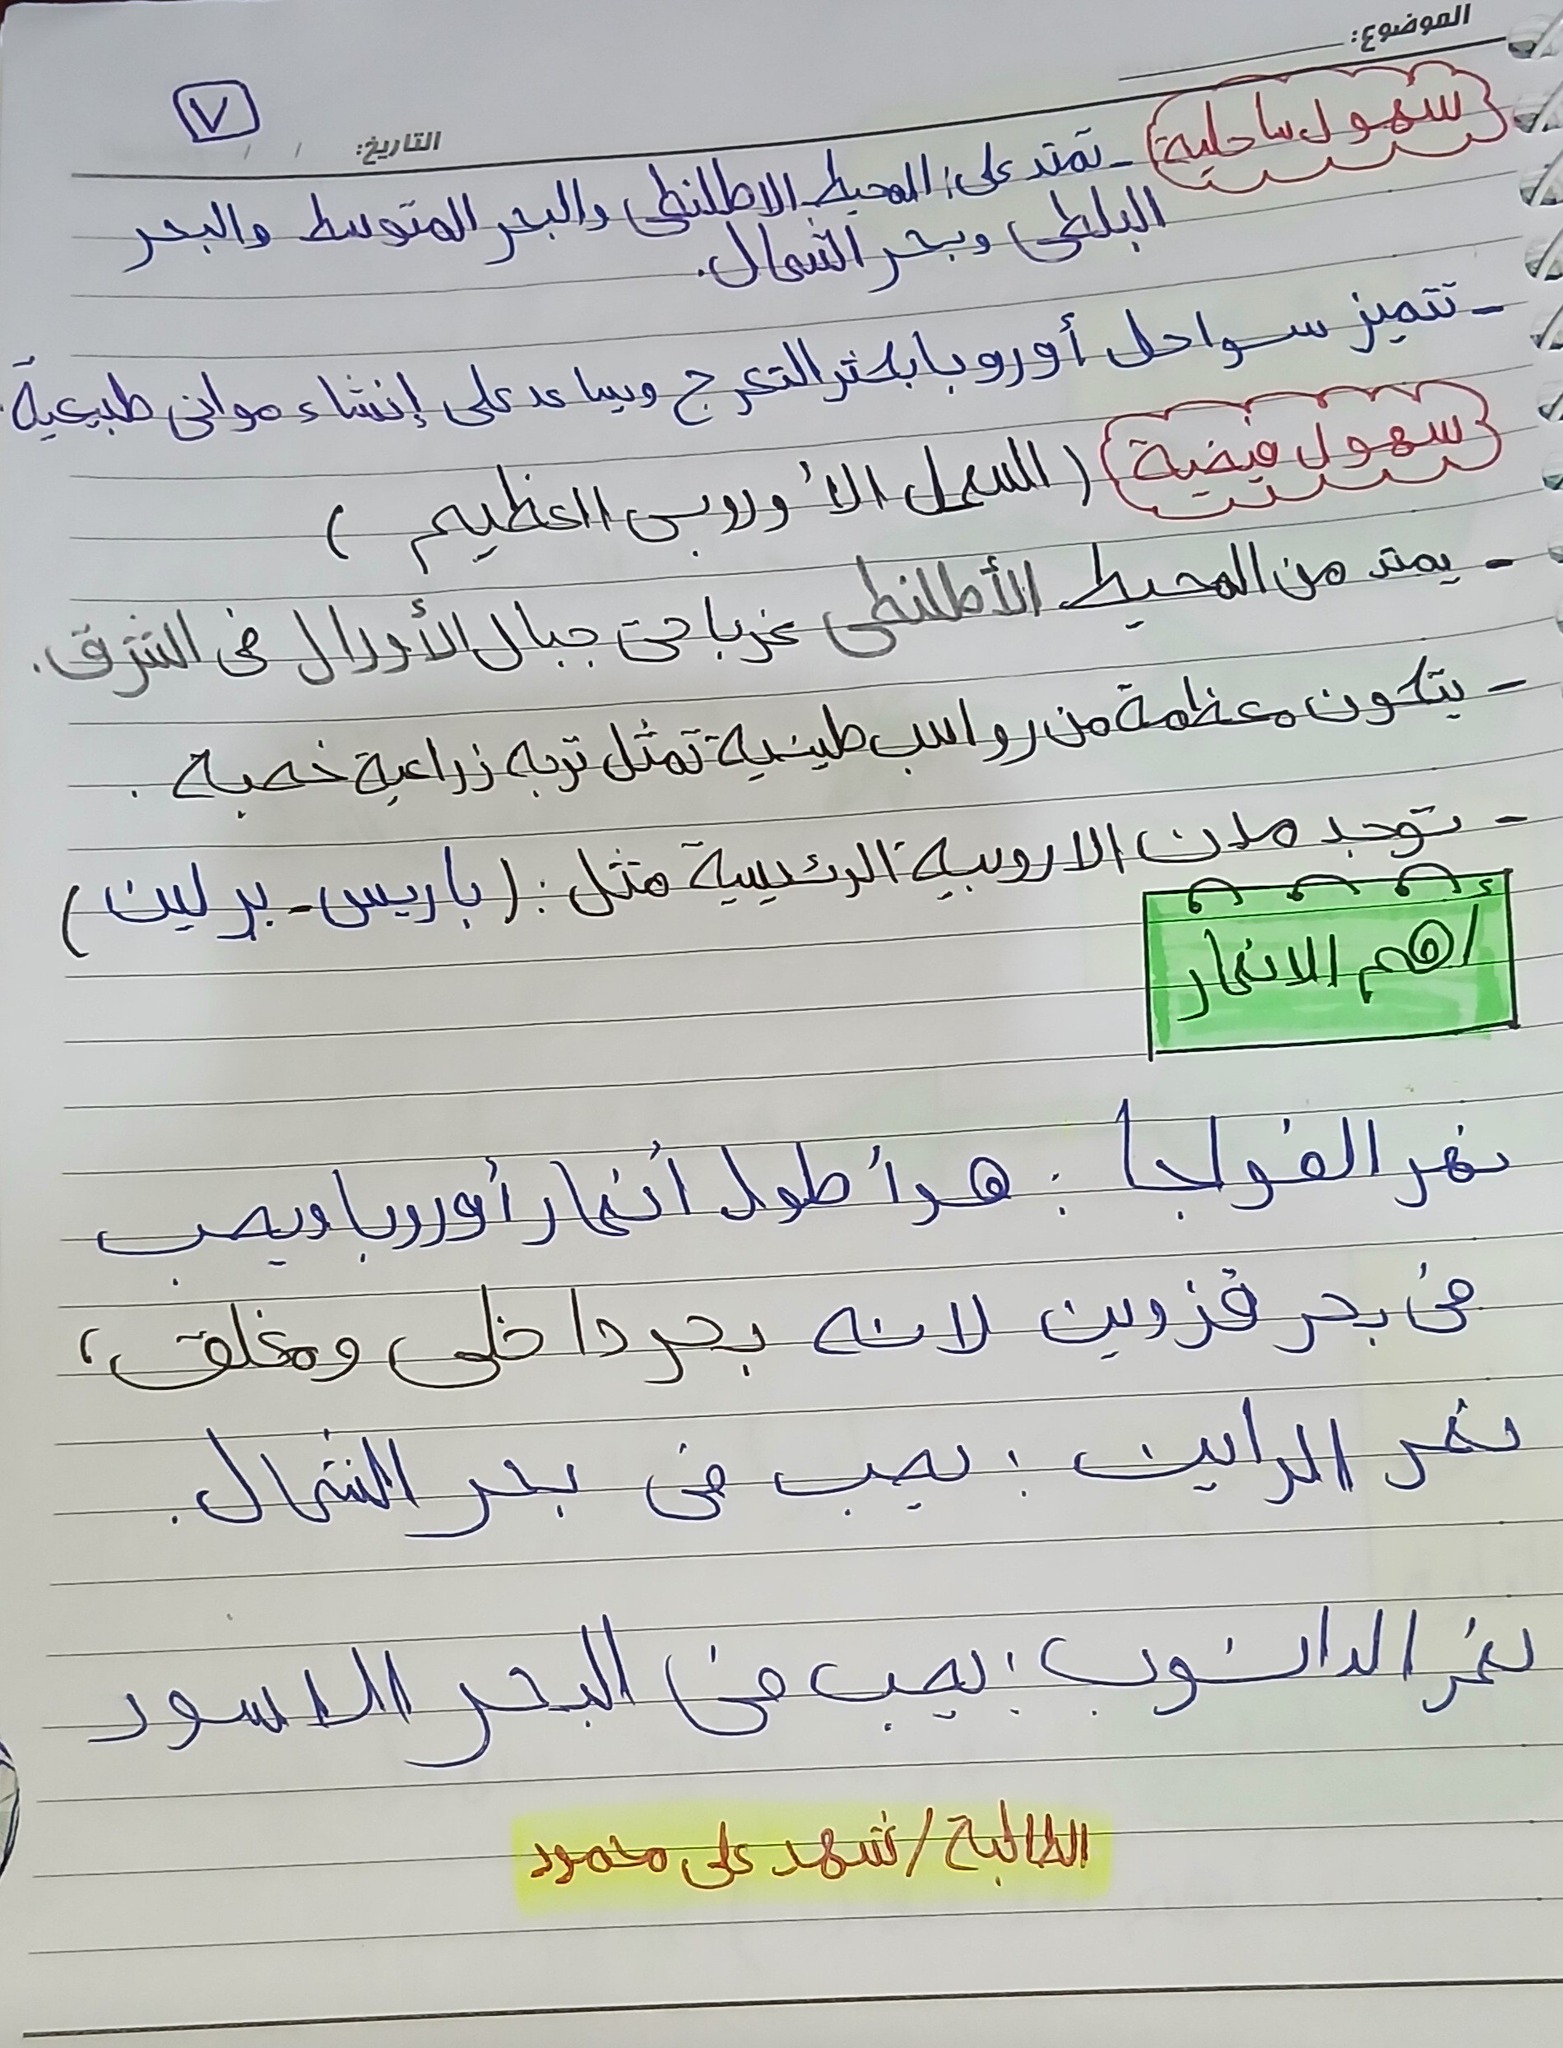 الموضوع:
٧
التاريخ: / /
سهول ساحلية - تمتد على: المحيط الاطلنطى والبحر المتوسط والبحر
البلطى وبحر الشمال.
- تتميز سواحل أوروبا بكثر التعرج ويساعد على إنشاء موانى طبيعية.
سهول فيضية (السهل الأوروبى العظيم)
- يمتد من المحيط الأطلنطى غربا حتى جبال الأورال فى الشرق.
- يتكون معظمة من رواسب طينية تمثل تربه زراعية خصبه.
- توجد مدن الاروبية الرئيسية مثل: (باريس - برلين)
أهم الانهار
نهر الفولجا: هو أطول أنهار أوروبا ويصب
فى بحر قزوين لانه بحر داخلى ومغلق،
نهر الراين: يصب فى بحر الشمال.
نهر الدانوب: يصب فى البحر الاسود
الطالبة / شهد على محمود